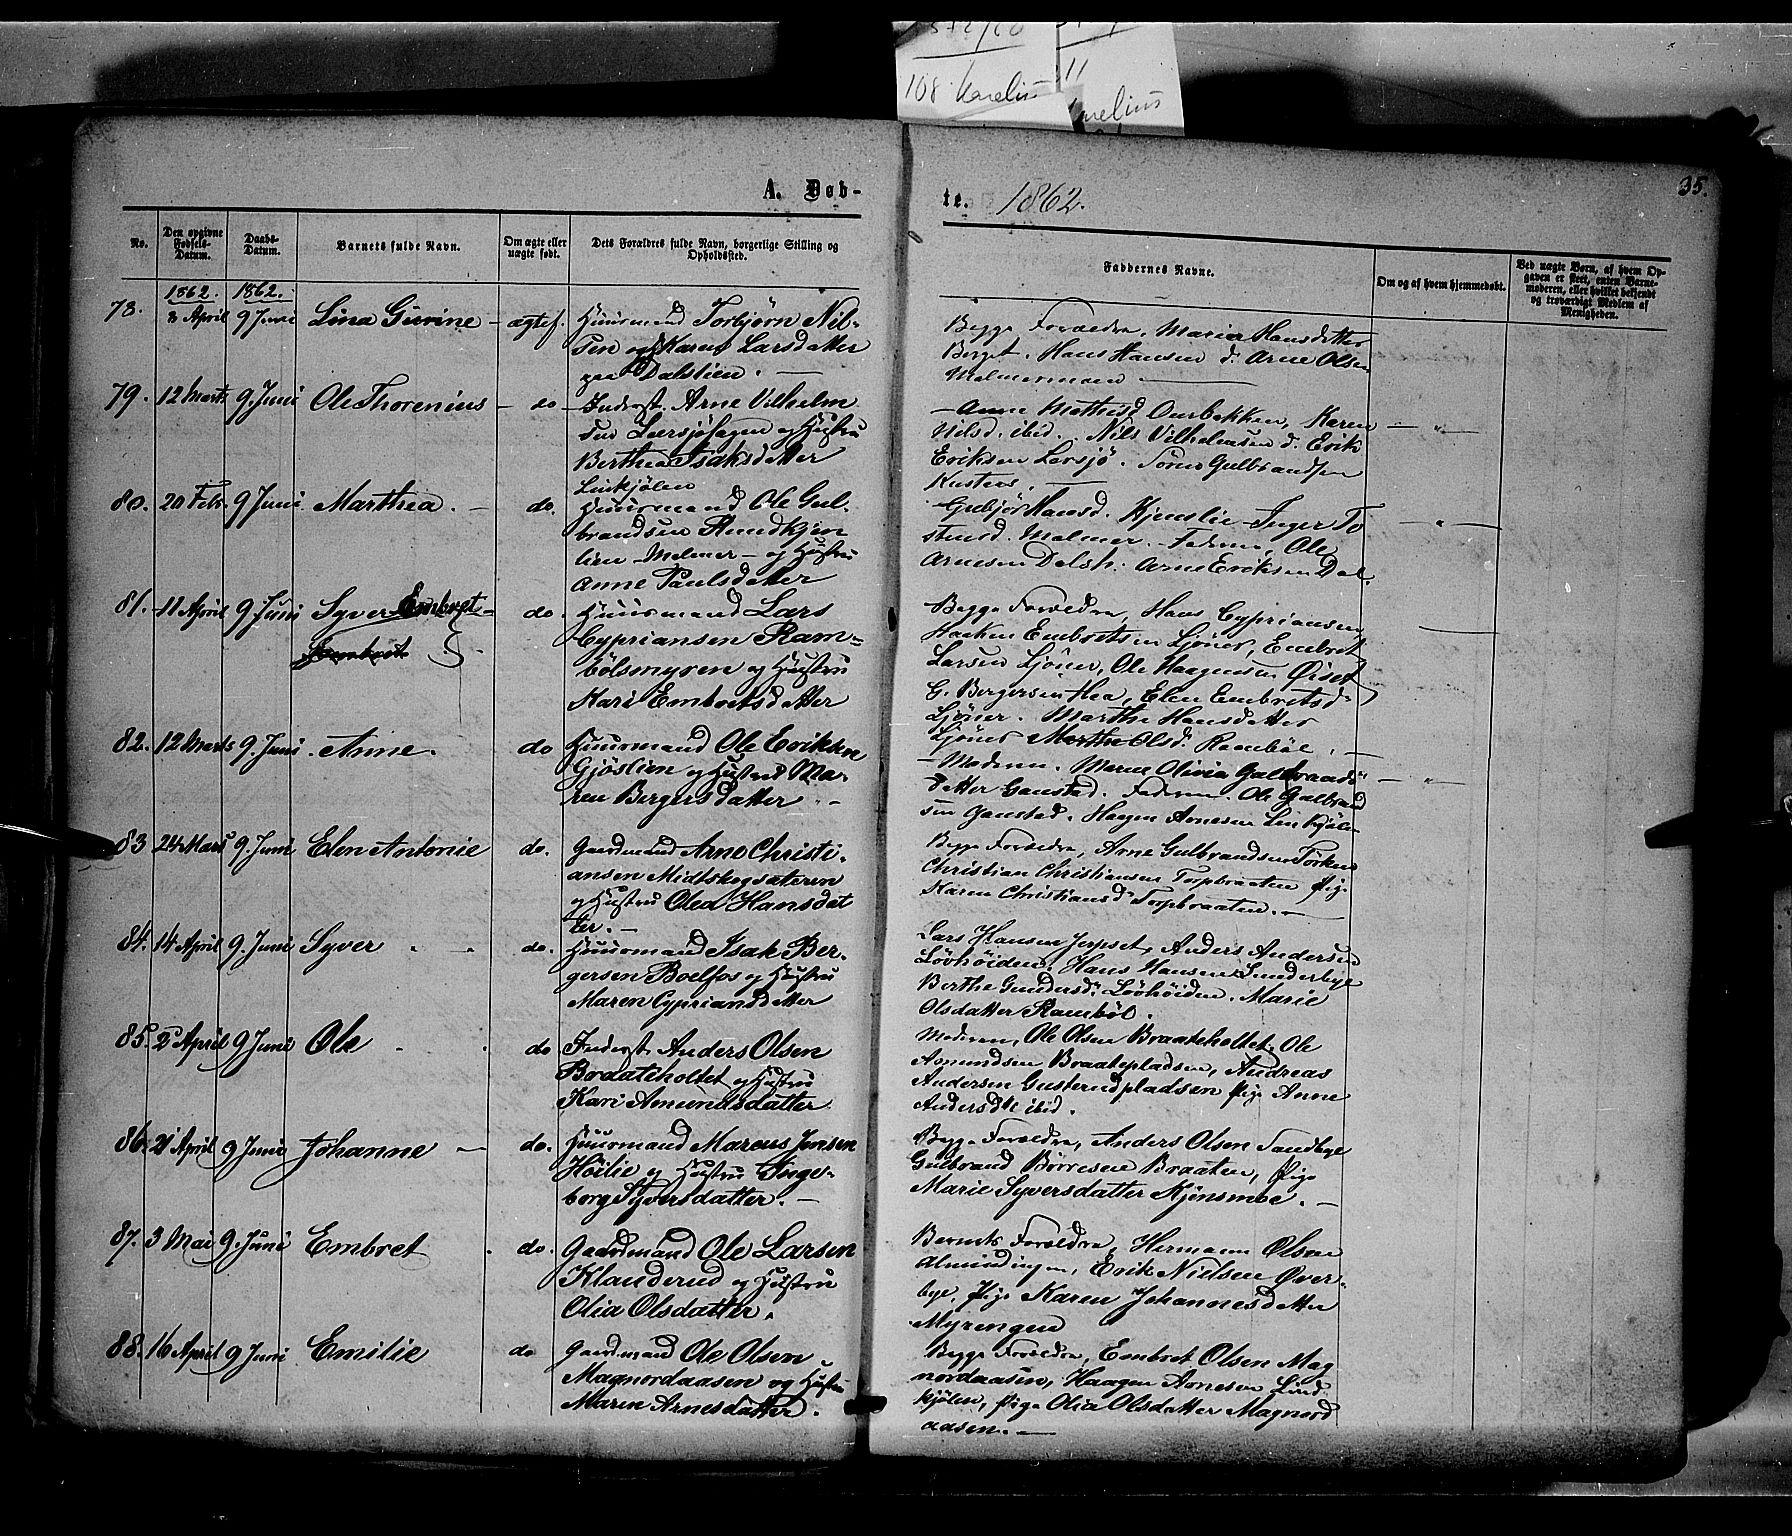 108 Karelius
11
A. Døb-
te. 1862.
35.
No.
Den opgivne Fødsels-Datum.
Daabs-Datum.
Barnets fulde Navn.
Om ægte eller uægte født.
Dets Forældres fulde Navn, borgerlige Stilling og Opholdssted.
Faddernes Navne.
Om og af hvem hjemmedøbt.
Ved uægte Børn, af hvem Opgaven er skeet, enten Barnemoderen, eller hvilket bekjendt og troværdigt Medlem af Menigheden.
1862. 1862.
78. 3 April 9 Juni Lina Gurine - ægtef. Huusmand Torbjørn Nil-
sen og H Karen Larsdatter
paa Dalstien. -
Begge Forældre, Maria Hansdatter
Berget. Hans Hansen d. Arne Olsen
Melmermoen
79. 12 Marts 9 Juni Ole Thorenius - do - Inderst. Arne Vilhelm
sen Lersjøhagen og Hustru
Berthea Isaksdatter
Linkjølen
- Anne Mathisd Ourbekken, Karen
Nilsd. ibid. Nils Vilhelmsen d. Erik
Eriksen Lersjø. Søren Gulbrandsen
80. 20 Febr. 9 Juni Marthea. - do. Huusmand Ole Gul-
brandsen
lien Melmer - og Hustru
Anne Paulsdatter
Gubjør Hansd. Kjenslie Inger To
stensd. Melmer. - Faderen, Ole
Arnesen Dalsh. Arne Eriksen Dal.
81. 11 April 9 Juni Syver Embret - do. Huusmand Lars
Embret
Cypriansen Ram-
bölsmyren og Hustru
Kari Embretsdatter
Begge Forældre, Hans Cypriansen,
Haaken Embretsen Ljöner, Embret
Larsen Ljöner, Ole Haagensen Öiset
G. Bergersen Hea, Elen Embretsd
Ljöner. Marthe Hansdatter
Ljöner Marthe Olsd. Ramböl. -
82. 12 Marts 9. Juni Anne. do Huusmand Ole Eriksen
Gjöslien og Hustru Ma-
ren Bergersdatter. -
- Moderen. Maren Olivia Gulbrands
datter Ganstad. Faderen. Ole Gulbrand
sen Ganstad. Haagen Arnesen Linkjölen
83 24 Mars 9. Juni Elen Antonie do. Gaardmand Arne Christi-
ansen Midtskogsæteren
og Hustru Olea Hansdat
ter. -
Begge Forældre, Arne Gulbrandsen Törken
Christian Christiansen Torpbraaten Pige
Karen Christiansd Torpbraaten. -
84. 14 April 9. Juni Syver do. Huusmand Isak Ber-
gersen Boelfos og Hustru
Maren Cypriansdatter
Lars Hansen Jerpset, Anders Andersen
Lövhöiden, Hans Hansen Sunderbye
Berthe Gundersd. Lövhöiden. Marie
Olsdatter Ramböl.
85. 2 April 9 Juni Ole do Inderst. Anders Olsen
Bordateholtet og Hustru
Kari Amundsdatter
Moderen, Ole Olsen Braateholtet, Ole
Asmundsen Braatepladsen, Andreas
Andersen Gusterudpladsen Pige Anne
Andersdtt ibid.
86. 21 April 9 Juni Johanne - do. Huusmand Marcus Jensen
Höilie og Hustru Inge-
borg Syversdatter. -
Begge Forældre, Anders Olsen Sandbye
Gulbrand Börresen Braaten, Pige
Marie Syversdatter Kjönsmoe. -
87. 3 Mai 9. Juni Embret do. Gaardmand Ole Larsen
Klanderud og Hustru
Olia Olsdatter.
Barnets Forældre, Hermann Olsen
Almindingen, Erik Nielsen Över-
bye, Pige Karen Johannesdatter
Myrengen
88. 16 April 9 Juni Emilie do Gaardmand Ole Olsen
Magnordaasen og Hustru
Maren Arnesdatter.
Begge Forældre, Embret Olsen Mag
nordaasen, Haagen Arnesen Lind
kjölen, Pige Olia Olsdatter Magnord
aasen. -